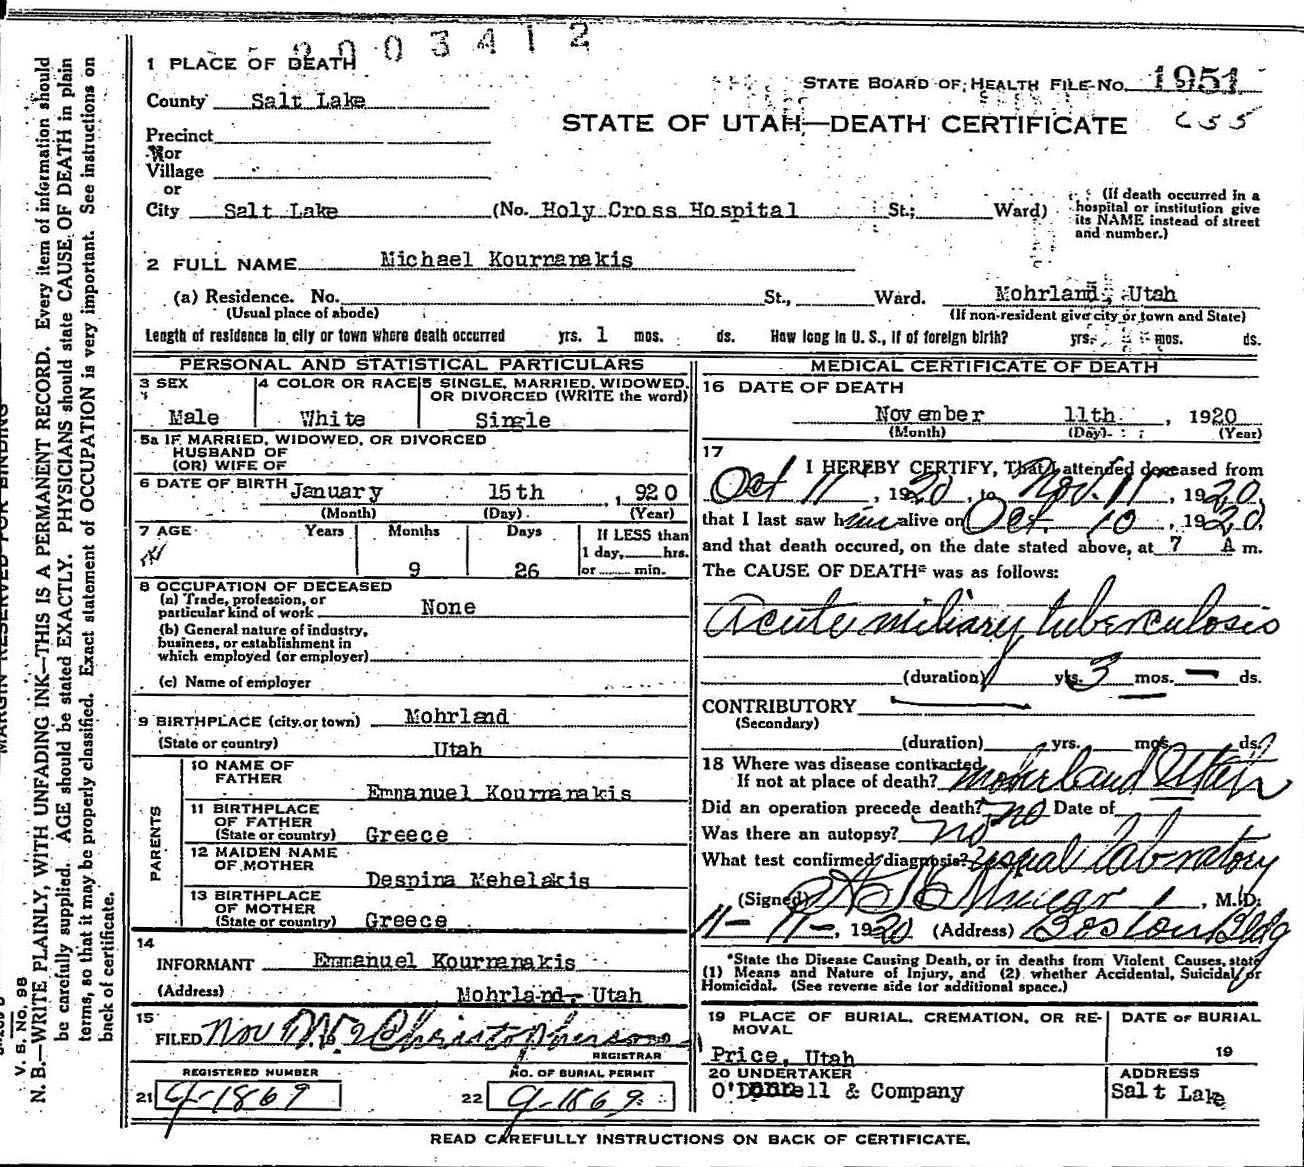 2003412
1 PLACE OF DEATH
STATE BOARD OF HEALTH FILE No. 1951
County Salt Lake
STATE OF UTAH—DEATH CERTIFICATE
Precinct
or
Village
or
City Salt Lake (No. Holy Cross Hospital St.; Ward)
(If death occurred in a
hospital or institution give
its NAME instead of street
and number.)
2 FULL NAME Michael Kournanakis
(a) Residence. No. St., Ward. Mohrland, Utah
(Usual place of abode) (If non-resident give city or town and State)
Length of residence in city or town where death occurred yrs. 1 mos. ds. How long in U. S., if of foreign birth? yrs. mos. ds.
PERSONAL AND STATISTICAL PARTICULARS
3 SEX 4 COLOR OR RACE 5 SINGLE, MARRIED, WIDOWED,
OR DIVORCED (WRITE the word)
Male White Single
5a IF MARRIED, WIDOWED, OR DIVORCED
HUSBAND OF
(OR) WIFE OF
6 DATE OF BIRTH January 15th , 1920
(Month) (Day) (Year)
7 AGE Years Months Days If LESS than
1 day, hrs.
9 26 or min.
8 OCCUPATION OF DECEASED
(a) Trade, profession, or
particular kind of work None
(b) General nature of industry,
business, or establishment in
which employed (or employer)
(c) Name of employer
9 BIRTHPLACE (city or town) Mohrland
(State or country) Utah
PARENTS
10 NAME OF
FATHER Emmanuel Kournanakis
11 BIRTHPLACE
OF FATHER
(State or country) Greece
12 MAIDEN NAME
OF MOTHER
Despina Mehelakis
13 BIRTHPLACE
OF MOTHER
(State or country) Greece
14
INFORMANT Emmanuel Kournanakis
(Address) Mohrland, Utah
15
FILED Nov
REGISTRAR
REGISTERED NUMBER NO. OF BURIAL PERMIT
21 G-1869 22 G-1869
MEDICAL CERTIFICATE OF DEATH
16 DATE OF DEATH
November 11th , 1920
(Month) (Day) (Year)
17
I HEREBY CERTIFY, That I attended deceased from
Oct 11 , 1920, to Nov. 11 , 1920,
that I last saw him alive on Oct 10 , 1920,
and that death occured, on the date stated above, at 7 A m.
The CAUSE OF DEATH* was as follows:
Acute miliary tuberculosis
(duration) yrs. 3 mos. — ds.
CONTRIBUTORY
(Secondary)
(duration) yrs. mos. ds.
18 Where was disease contracted
If not at place of death? Mohrland Utah
Did an operation precede death? no Date of
Was there an autopsy? no
What test confirmed diagnosis? usual laboratory
(Signed) , M.D.
11-11-, 1920 (Address) Boston Bldg
*State the Disease Causing Death, or in deaths from Violent Causes, state
(1) Means and Nature of Injury, and (2) whether Accidental, Suicidal, or
Homicidal. (See reverse side for additional space.)
19 PLACE OF BURIAL, CREMATION, OR RE- DATE OF BURIAL
MOVAL
Price, Utah 19
20 UNDERTAKER ADDRESS
O'Donnell & Company Salt Lake
READ CAREFULLY INSTRUCTIONS ON BACK OF CERTIFICATE.
MARGIN RESERVED FOR BINDING
V. S. No. 98
N. B.—WRITE PLAINLY, WITH UNFADING INK—THIS IS A PERMANENT RECORD. Every item of information should
be carefully supplied. AGE should be stated EXACTLY. PHYSICIANS should state CAUSE OF DEATH in plain
terms, so that it may be properly classified. Exact statement of OCCUPATION is very important. See instructions on
back of certificate.